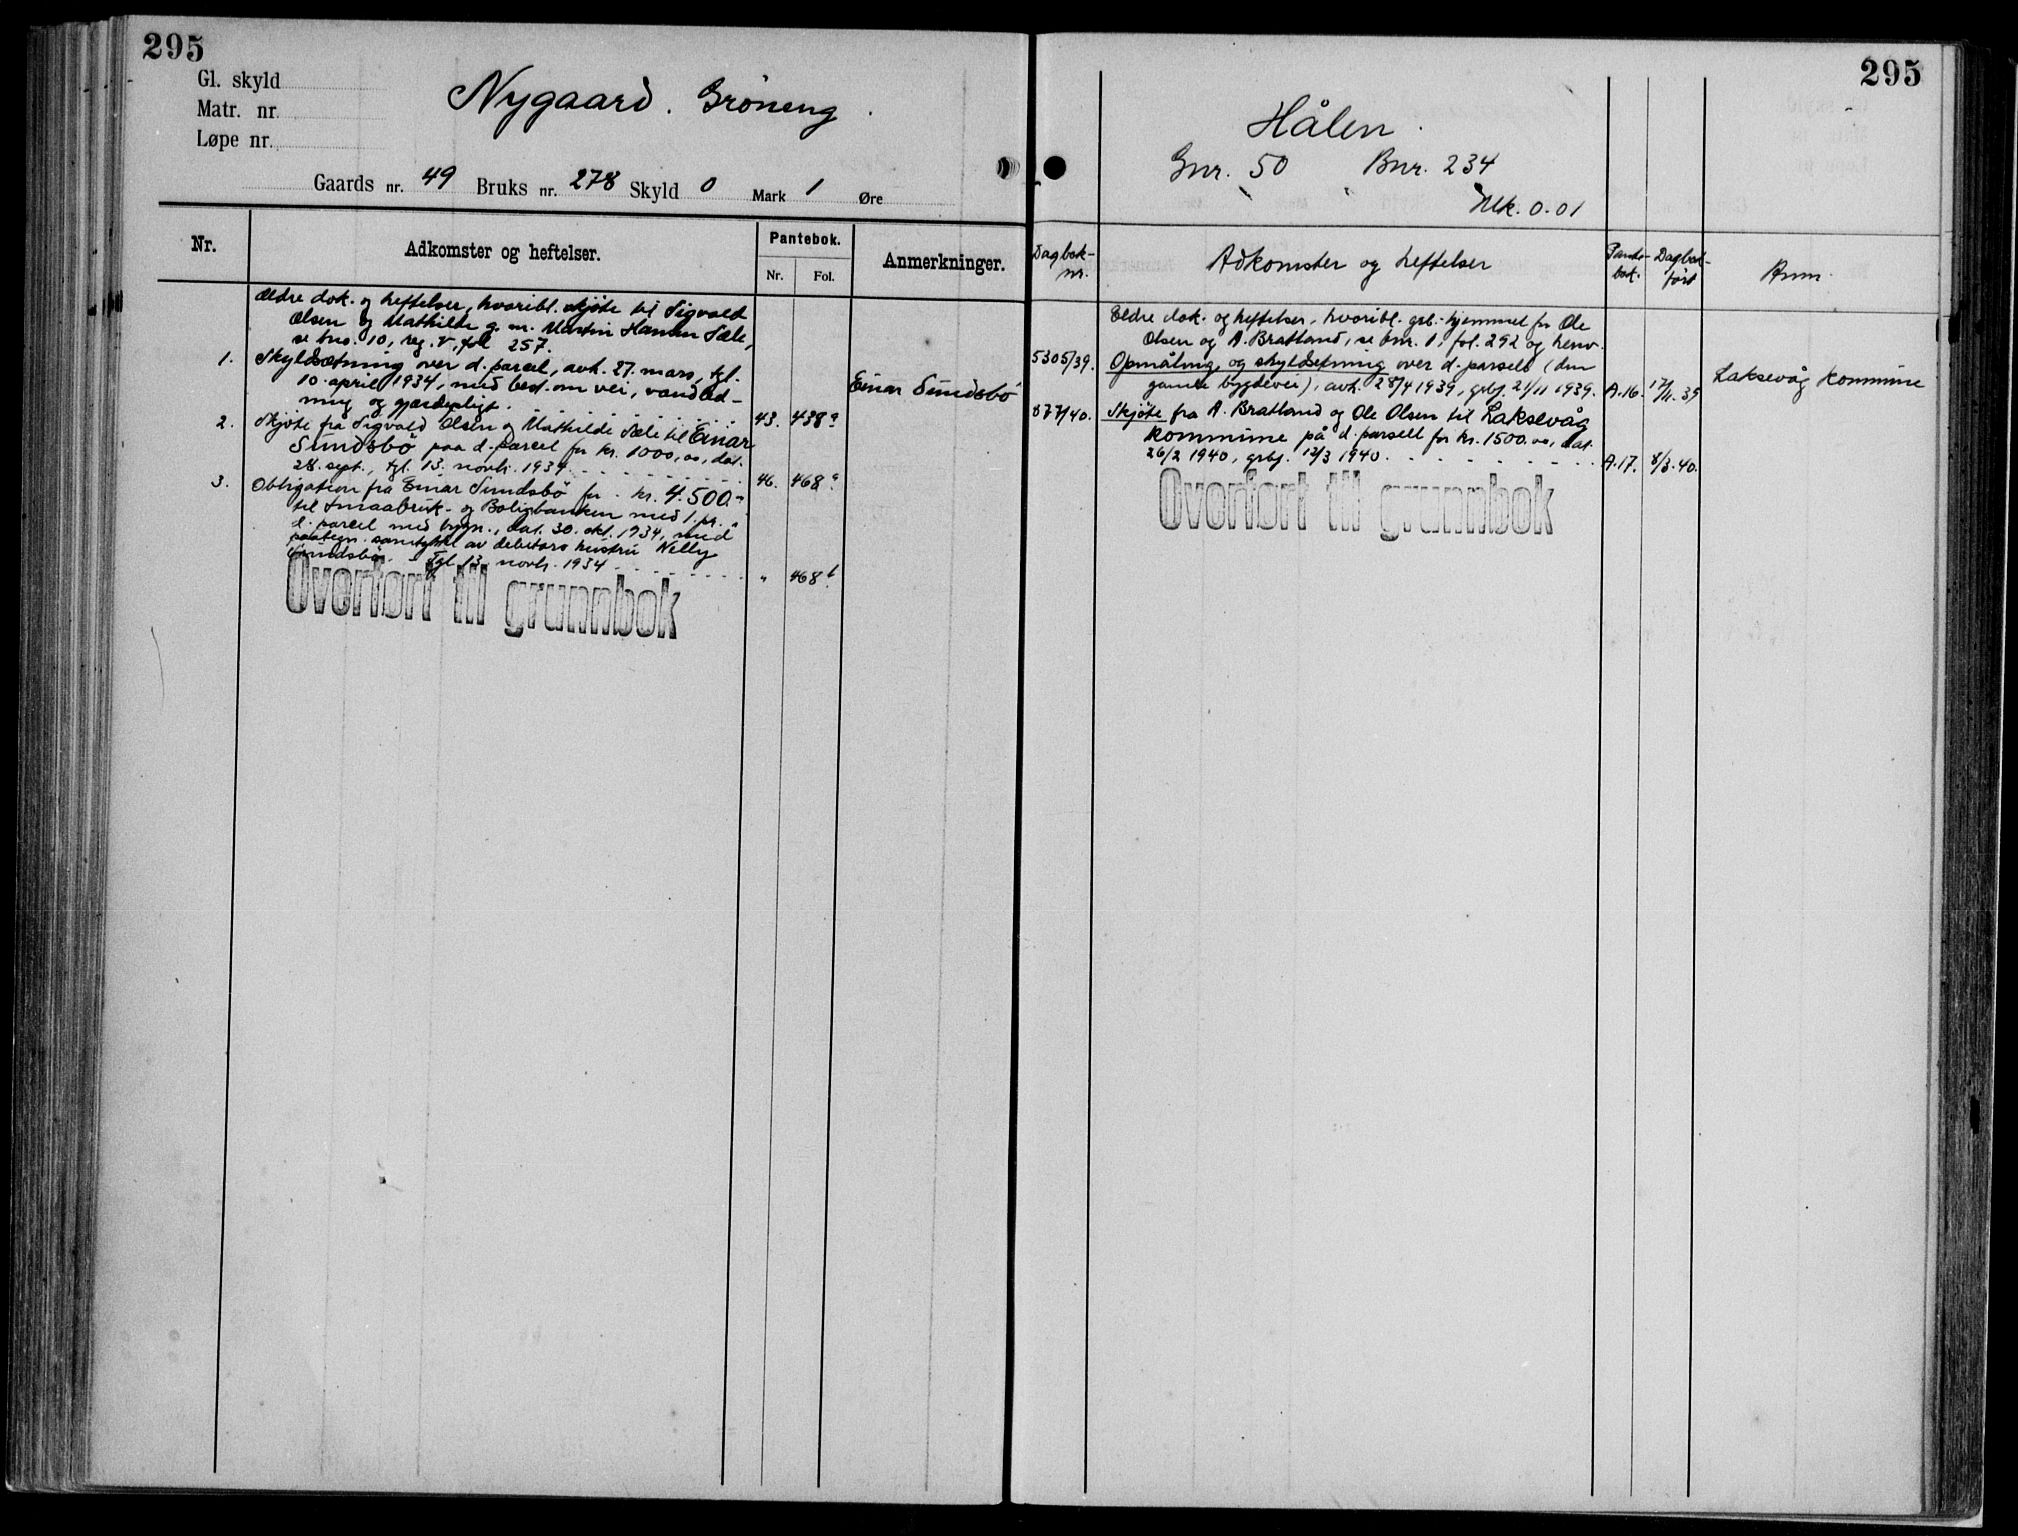 295
Gl. skyld
Matr. nr.
Løpe nr.
Nygaard. Gröneng.
Gaards nr. 49 Bruks nr. 278 Skyld 0 Mark 1 Øre
Nr. Adkomster og heftelser. Pantebok. Anmerkninger.
Nr. Fol.
Ældre dok. og heftelser, hvoribl. skjöte til Sigvald
Olsen og Mathilde g. m. Martin Hansen Sæle,
se bno. 10, reg. V, fol 257.
1. Skyldsætning over d. parcel, avh. 27. mars, tgl.
10. april 1934, med best. om vei, vandled-
ning og gjærdepligt. 43. 438a Einar Sundsbö
2. Skjöte frå Sigvald Olsen og Mathilde Sæle til Einar
Sundsbö paa d. parcel for kr. 1000,00, dat.
28. sept., tgl. 13. novbr. 1934 46. 468a
3. Obligation fra Einar Sundsbö for kr. 4.500.-
til Smaabruk- og Boligbanken med 1. pr. i
d. parcel med bygn., dat. 30. okt. 1934, med
paategn. samtykke av debitors hustru Nelly
Sundsbö. Tgl. 13. novbr. 1934 " 468b
Overført til grunnbok
295
Hålen.
Gnr. 50 Bnr. 234
Mk. 0.01
Dagbok-
nr. Adkomster og heftelser Pante-
bok. Dagbok-
ført Anm.
Eldre dok. og heftelser, hvoribl. grb.-hjemmel for Ole
Olsen og A. Bratland, se bnr. 1, fol. 292 og henv.
5305/39. Opmåling og skyldsetning over d. parsell (den
gamle bygdevei), avh. 28/4 1939, grbf. 21/11 1939. A.16. 17/11.39 Laksevåg kommune
877/40. Skjöte fra A. Bratland og Ole Olsen til Laksevåg
kommune på d. parsell for kr. 1500.00, dat.
26/2 1940, grbf. 12/3 1940. A.17. 8/3.40.
Overført til grunnbok